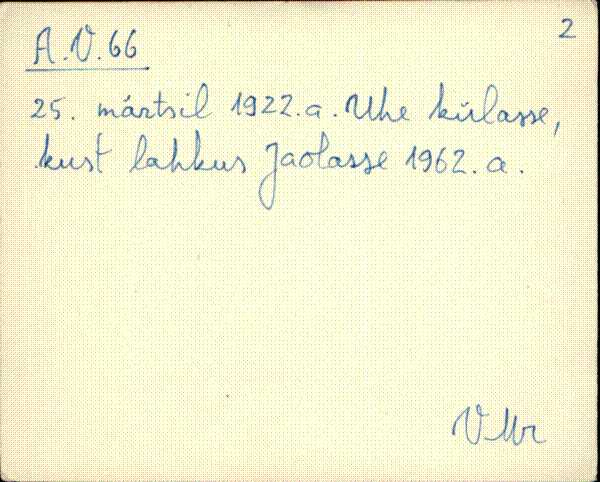 2
A.V.66
25. märtsil 1922.a. Uhe külasse,
kust lahkus Jaolasse 1962.a.
VMr